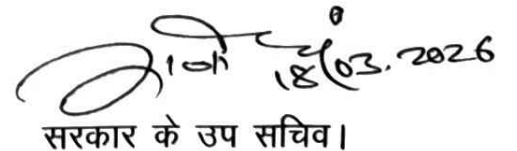 18/03.2026
सरकार के उप सचिव।